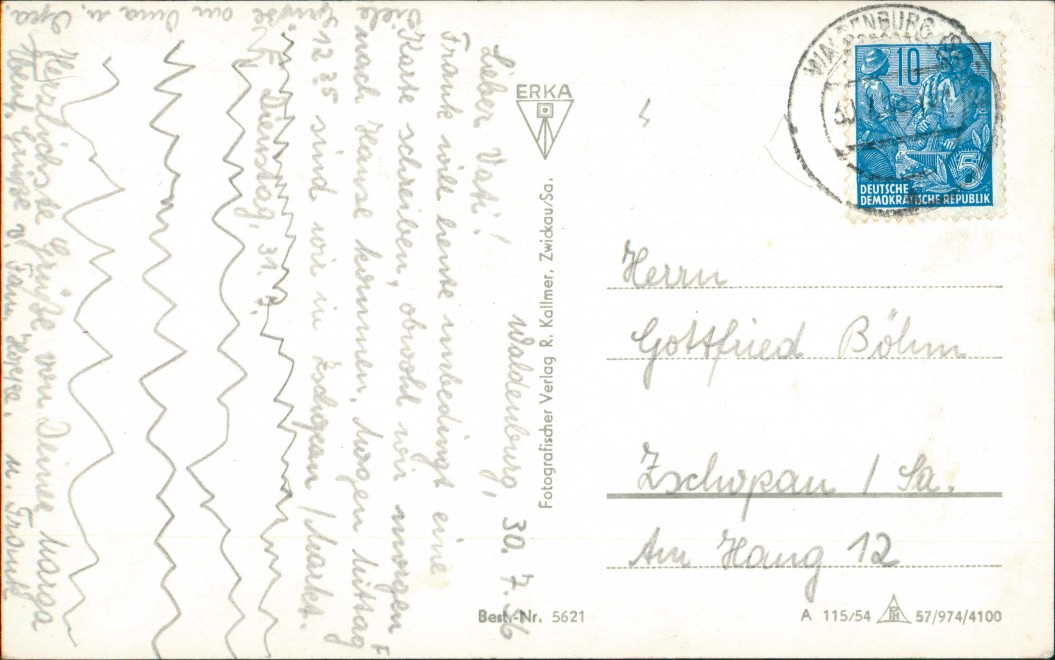 Waldenburg, 30. 7. 56
Lieber Vati!
Frank will heute unbedingt eine
Karte schreiben, obwohl wir morgen
nach Hause kommen. Morgen Mittag
12 35 sind wir in Zschopau / Markt.
Dienstag, 31. 7.
Herzlichste Grüße von Deiner Marga
u. Frank
Viele Grüße an Oma u. Opa.
Grüße v. Fam.
ERKA
Fotografischer Verlag R. Kallmer, Zwickau/Sa.
Best.-Nr. 5621
WALDENBURG
10
5
DEUTSCHE
DEMOKRATISCHE REPUBLIK
Herrn
Gottfried Böhm
Zschopau / Sa.
Am Hang 12
A 115/54 57/974/4100